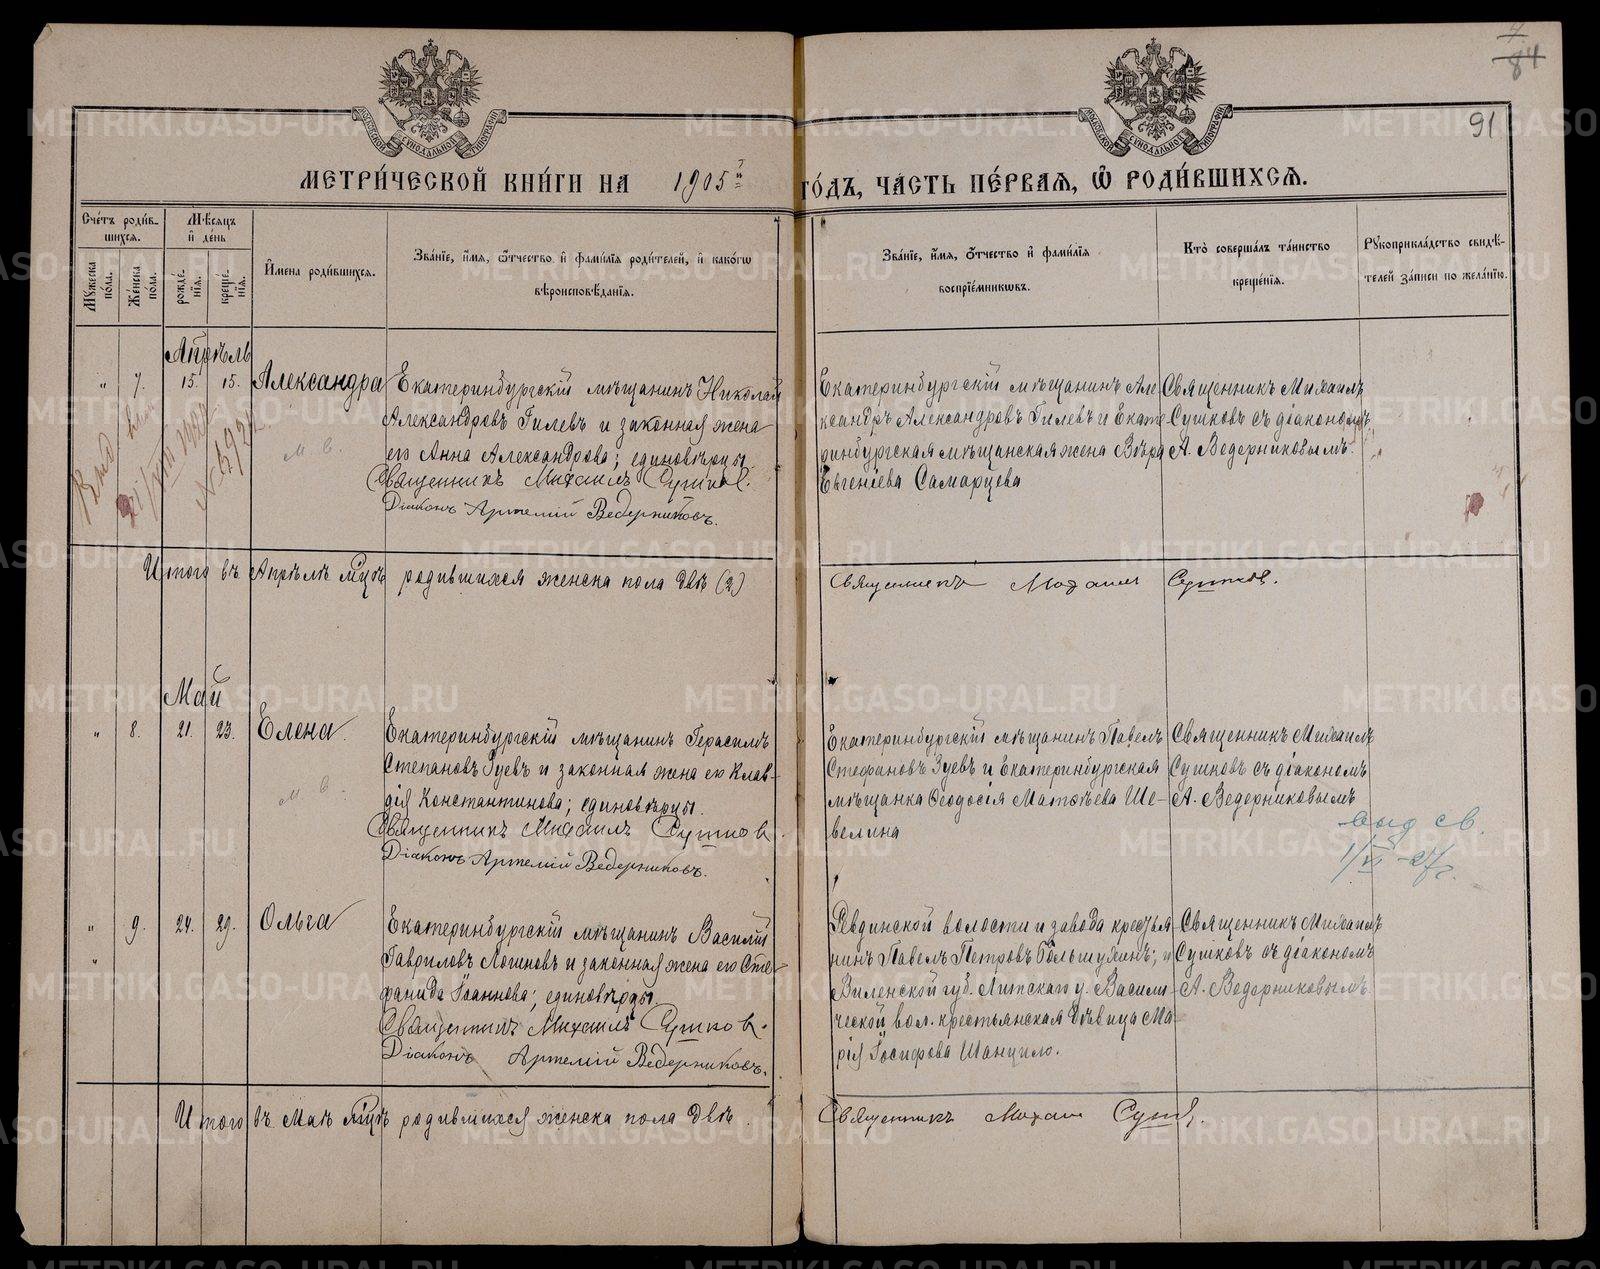 7
84
91
МОСКОВСКОЙ СѴНОДАЛЬНОЙ ТИПОГРАФІИ
МОСКОВСКОЙ СѴНОДАЛЬНОЙ ТИПОГРАФІИ
МЕТРИ́ЧЕСКОЙ КНИ́ГИ НА 1905й ГО́ДЪ, ЧА́СТЬ ПЕ́РВАЯ, Ѡ҆ РОДИ́ВШИХСѦ.
Сче́тъ роди́в-
шихсѧ.
Мꙋ́жеска по́ла.
Же́нска по́ла.
Мѣ́сѧцъ
и҆ де́нь
рожде́-
нїѧ.
креще́-
нїѧ.
И҆мена роди́вшихсѧ.
Зва́нїе, и҆́мѧ, ѻ҆́тчество и҆ фами́лїѧ роди́телей, и҆ како́гѡ
вѣроисповѣ́данїѧ.
Зва́нїе, и҆́мѧ, ѻ҆́тчество и҆ фами́лїѧ
воспрїе́мникѡвъ.
Кто̀ соверша́лъ та́инство
креще́нїѧ.
Рꙋкоприкла́дство свидѣ́-
телей за́писи по жела́нїю.
Апрѣль
" 7. 15. 15. Александра
Екатеринбургскій мѣщанинъ Николай
Александровъ Гилевъ и законная жена
его Анна Александрова; единовѣрцы.
Священникъ Михаилъ Сушков.
Діаконъ Артемій Ведерниковъ.
м в.
Екатеринбургскій мѣщанинъ Але
ксандръ Александровъ Гилевъ и Екате
ринбургская мѣщанская жена Вѣра
Евгеніева Самарцева
Священникъ Михаилъ
Сушковъ съ діакономъ
А. Ведерниковымъ.
Итого въ Апрѣлѣ мцѣ родившихся женска пола двѣ (2)
Священникъ Михаил Сушков.
Май
" 8. 21. 23. Елена
Екатеринбургскій мѣщанинъ Герасимъ
Степановъ Зуевъ и законная жена его Клав-
дія Константинова; единовѣрцы.
Священникъ Михаилъ Сушков.
Діаконъ Артемій Ведерниковъ.
м в.
Екатеринбургскій мѣщанинъ Павелъ
Стефановъ Зуевъ и Екатеринбургская
мѣщанка Ѳеодосія Матѳѣева Ше-
велина
Священникъ Михаилъ
Сушковъ съ діакономъ
А. Ведерниковымъ
выд св.
1/VI -27г.
" 9. 24. 29. Ольга
"
Екатеринбургскій мѣщанинъ Василій
Гавриловъ Логиновъ и законная жена его Сте-
фанида Іоаннова; единовѣрцы.
Священникъ Михаилъ Сушков.
Діаконъ Артемій Ведерниковъ.
Ревдинской волости и завода крестья
нинъ Павелъ Петровъ Большухинъ; и
Виленской губ. Литскаго у. Васили-
ческой вол. крестьянская дѣвица Ма-
рія Іосифова Шанцило.
Священникъ Михаилъ
Сушковъ съ діакономъ
А. Ведерниковымъ.
Итого въ Маѣ мцѣ родившихся женска пола двѣ.
Священникъ Михаил Сушк.
METRIKI.GASO-URAL.RU